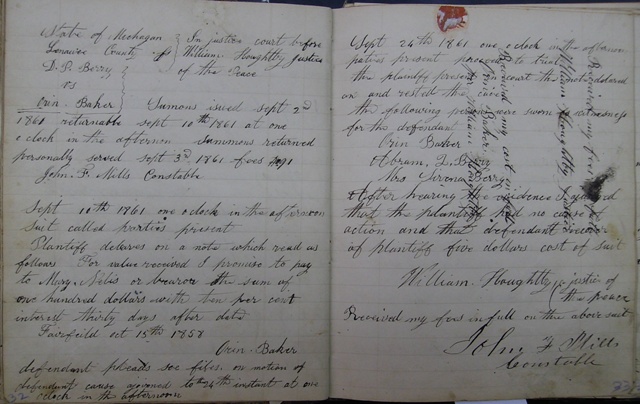 State of Mechagan
Lenawee County ss
In justice court before
William Houghtly Justice
of the Peace
D. P. Berry
vs
Orin Baker
Sumous issued sept 2d
1861 returnable sept 10th 1861 at one
o clock in the afternon summous returned
personally served sept 3d 1861 fees
John. F. Mills Constable
Sept 10th 1861 one o clock in the afternoon
suit called parties present
Plantiff declares on a note which read as
follows For value received I promise to pay
to Mary Nelis or bearor the sum of
one hundred dollars with ten per cent
interest thirty days after date
Fairfeild oct 15th 1858
Orin Baker
defendant pleads see files. on motion of
defendant cause ajorned to 24th instant at one
o clock in the afternoon
32
Sept 24th 1861 one o clock in the afternoon
parties present proceded to trial
the plantify present in court the note
on and rested the
the following persons were sworn witnesses
for the defendant
Orin Baker
Abram. D. Berry
Mrs Berry
After hearing the evidence I
that the plantiff had no case of
action and that defendant recover
of plantiff five dollars cost of suit
William. Houghtly justic of
the peace
Received my fees in full on the above suit
John F Mills
Constable
Received my cost in
Orin Baker
William Houghtly
Received my fees
William Houghtly Justice
33